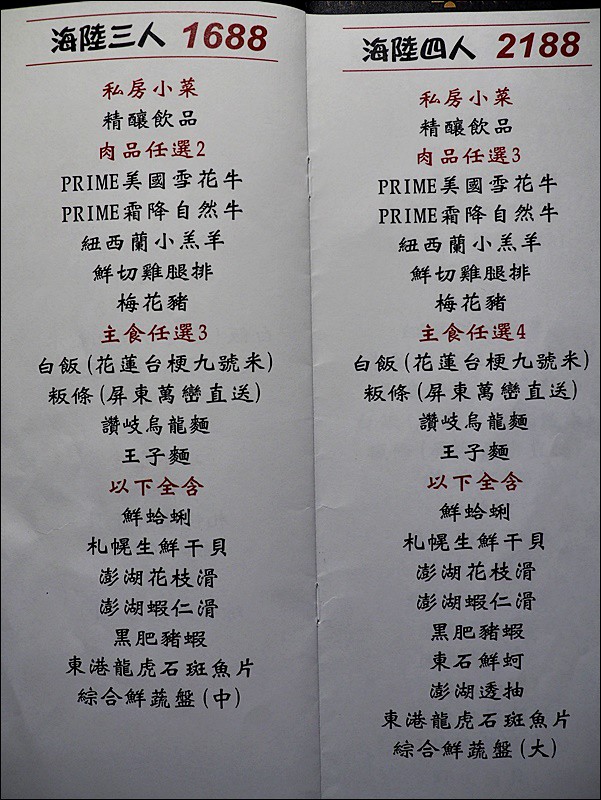 海陸三人 1688
私房小菜
精釀飲品
肉品任選2
PRIME美國雪花牛
PRIME霜降自然牛
紐西蘭小羔羊
鮮切雞腿排
梅花豬
主食任選3
白飯(花蓮台梗九號米)
粄條(屏東萬巒直送)
讚岐烏龍麵
王子麵
以下全含
鮮蛤蜊
札幌生鮮干貝
澎湖花枝滑
澎湖蝦仁滑
黑肥豬蝦
東港龍虎石斑魚片
綜合鮮蔬盤(中)
海陸四人 2188
私房小菜
精釀飲品
肉品任選3
PRIME美國雪花牛
PRIME霜降自然牛
紐西蘭小羔羊
鮮切雞腿排
梅花豬
主食任選4
白飯(花蓮台梗九號米)
粄條(屏東萬巒直送)
讚岐烏龍麵
王子麵
以下全含
鮮蛤蜊
札幌生鮮干貝
澎湖花枝滑
澎湖蝦仁滑
黑肥豬蝦
東石鮮蚵
澎湖透抽
東港龍虎石斑魚片
綜合鮮蔬盤(大)